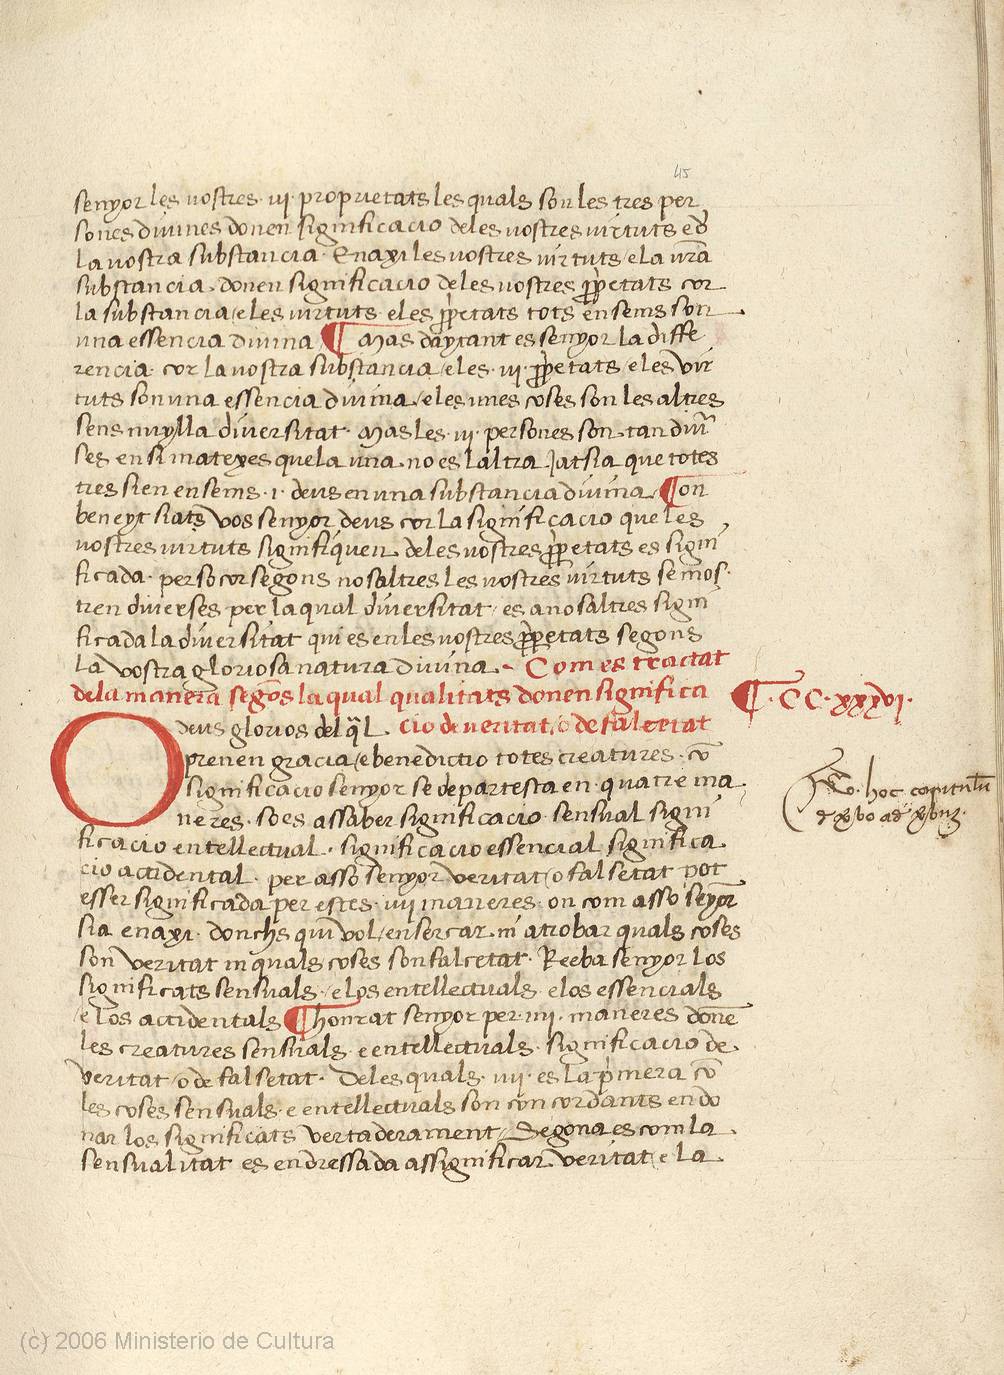 45
senyor les vostres · iij · proprietats les quals son les tres per
sones divines donen significacio de les vostres virtuts e d
la vostra substancia · Enaxi les vostres virtuts / e la vr̃a
substancia · donen significacio de les vostres ꝓpetats cor
la substancia / e les virtuts e les ꝓpetats tots ensems son
una essencia divina ¶ Mas daytant es senyor la diffe
rencia · cor la vostra substancia / e les · iij · ꝓpetats / e les vir
tuts son una essencia divina / e les unes coses son les altres
sens nuylla diversitat · Mas les · iij · persones son tan diũ
ses en si matexes que la una no es laltra Jatsia que totes
tres sien ensems · i · deus en una substancia divina ¶ On
beneyt siats vos senyor deus cor la significacio que les
vostres virtuts signifiquen de les vostres ꝓpetats es signi
ficada · perso cor segons nosaltres les vostres virtuts se mos
tren diverses · per la qual diversitat / es a nosaltres signi
ficada la diversitat qui es en les vostres ꝓpetats segons
la vostra gloriosa natura divina · Com es tractat
de la manera segõs la qual qualitats donen significa
cio de veritat / o de falcetat
¶ · CC · xxxvj ·
O deus glorios del q̃l
prenen gracia / e benedictio totes creatures · cõ
significacio senyor se departesca en · quatre ma
neres · so es assaber significacio sensual signi
ficacio entellectual · significacio essencial significa
cio accidental · per asso senyor veritat / o falsetat pot
esser significada per estes · iiij maneres · on com asso señyor
sia enaxi · donchs qui vol / ensercar ni atrobar quals coses
son veritat ni quals coses son falcetat · Reeba senyor los
significats sensuals · / e los entellectuals · e los essencials
/ e los accidentals ¶ honrat senyor per · iiij · maneres donẽ
les creatures sensuals · e entellectuals · significacio de
veritat / o de falsetat · De les quals · iiij · es la p̃mera cõ
les coses sensuals · e entellectuals son concordants en do
nar los significats vertaderament / Segona es com la
sensualitat es endressada assignificar veritat / e la
hoc capitulũ
(c) 2006 Ministerio de Cultura